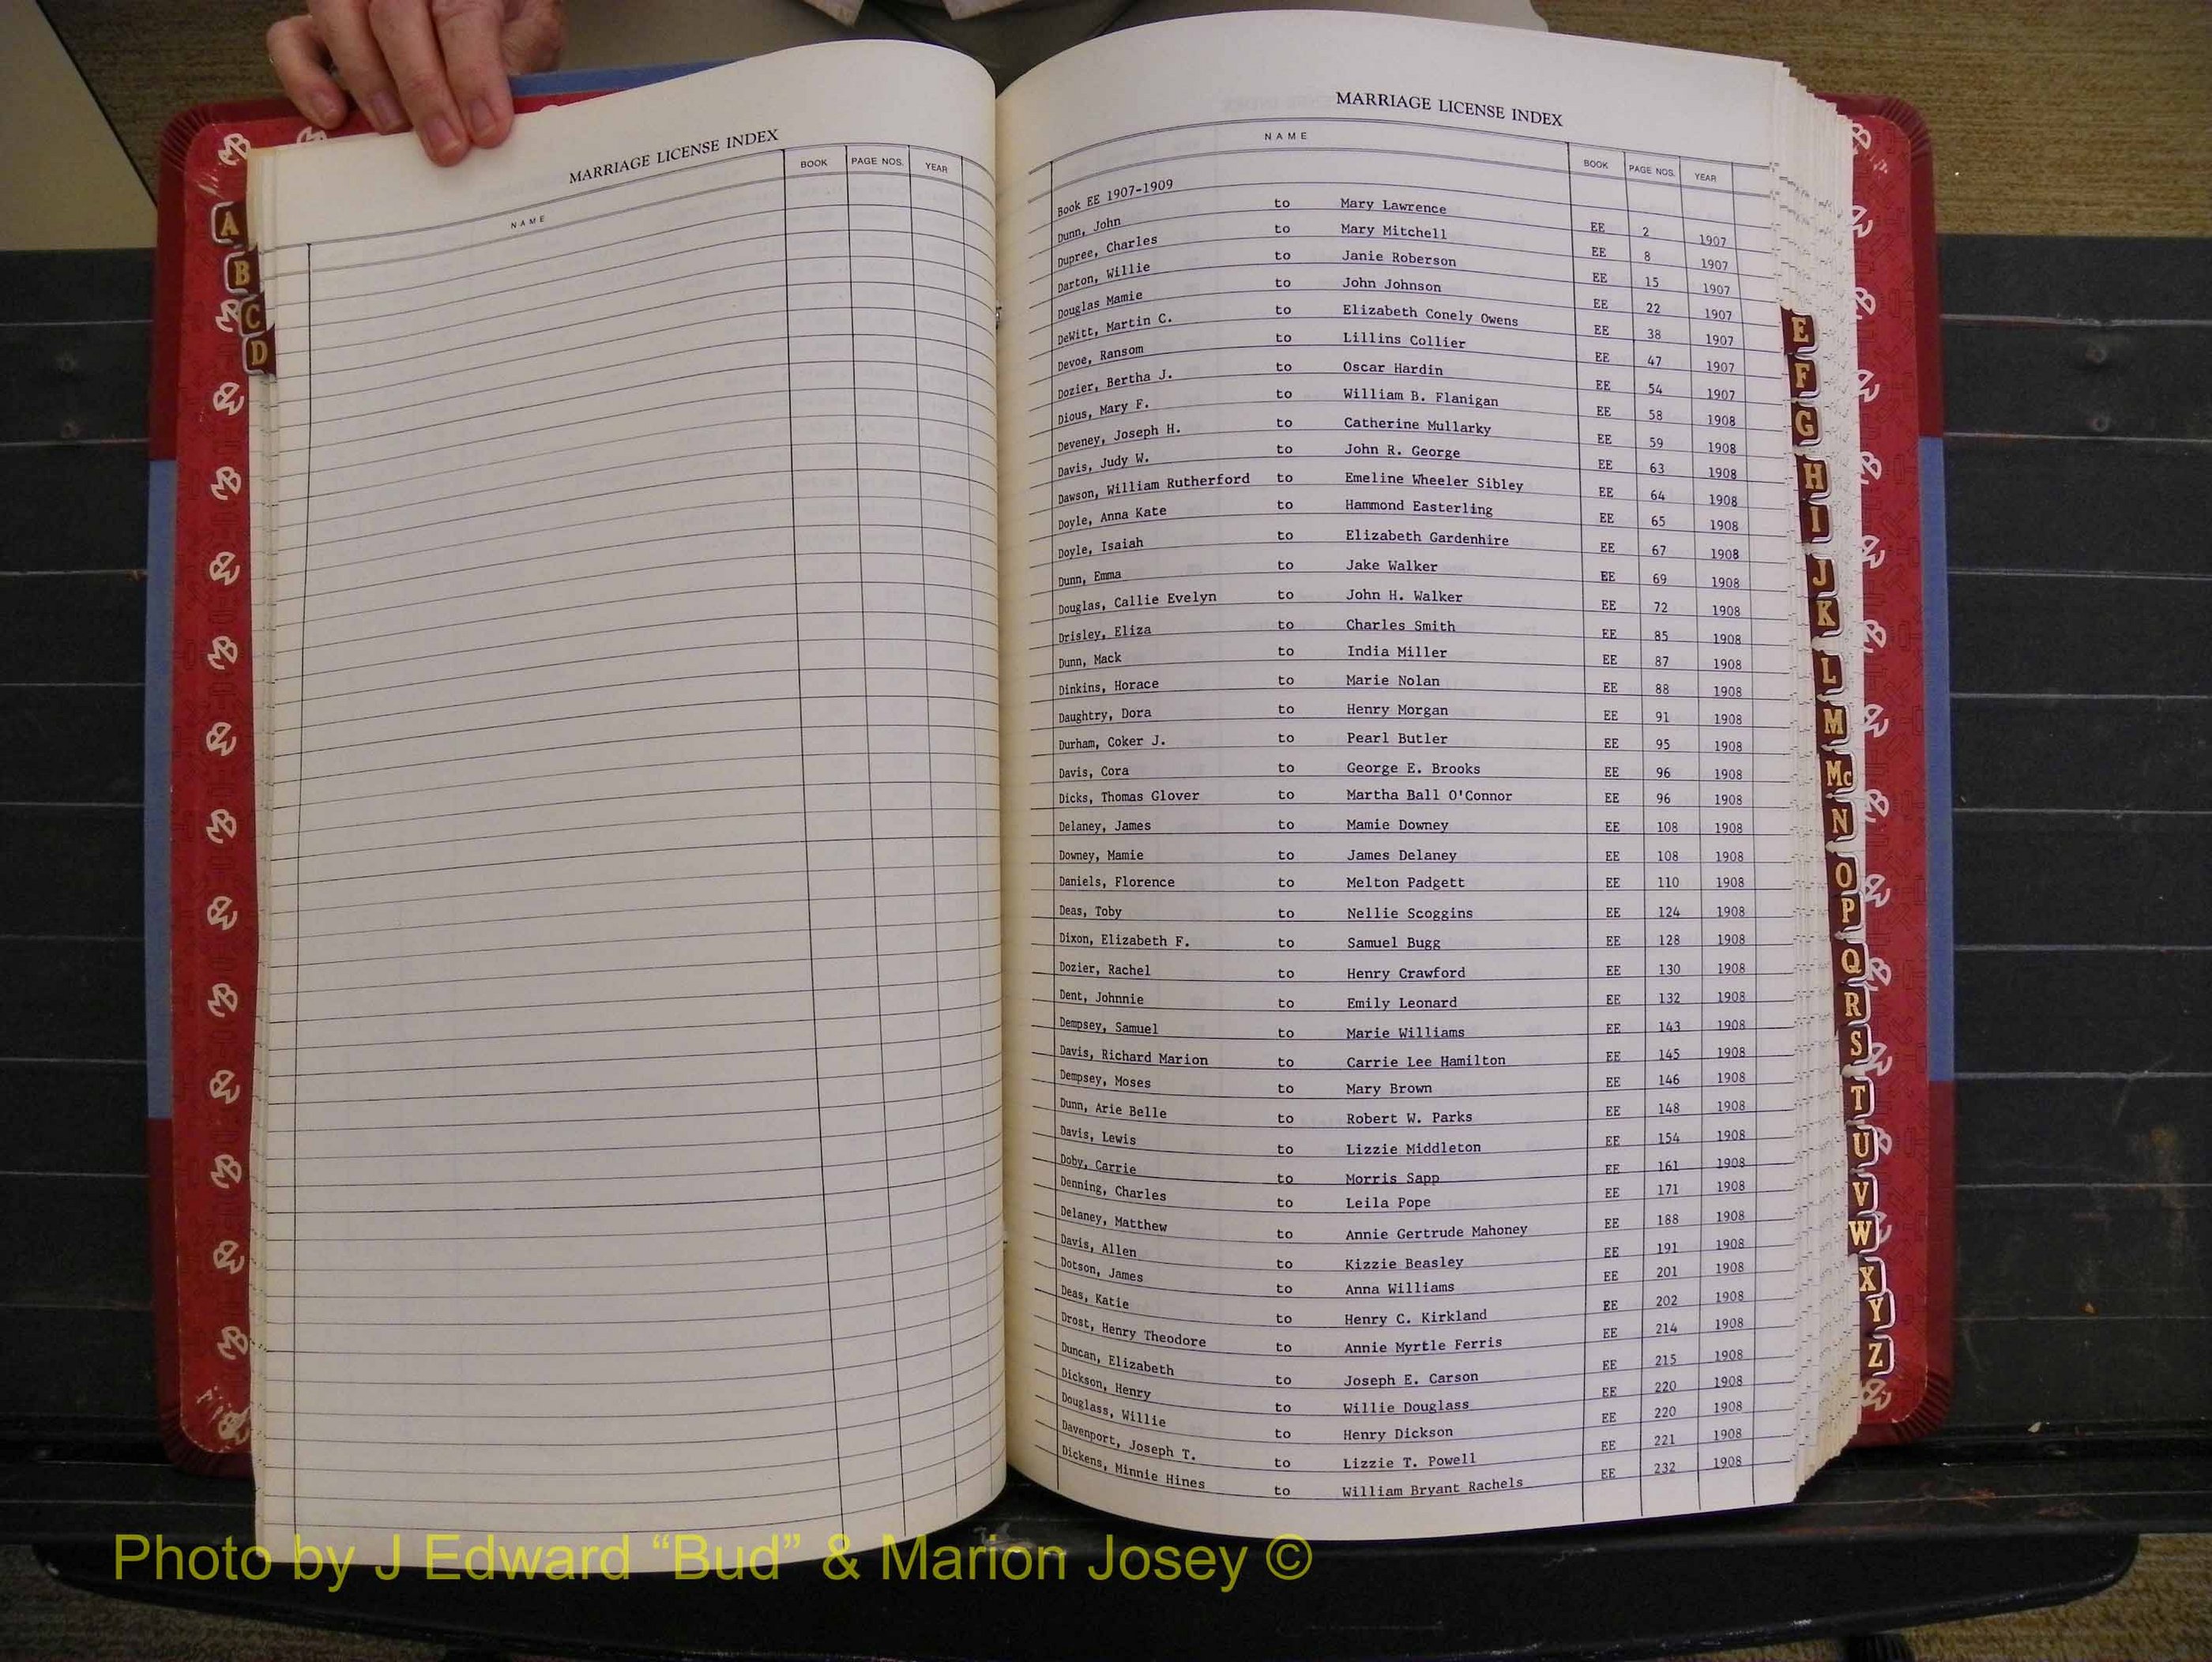 MARRIAGE LICENSE INDEX
NAME BOOK PAGE NOS. YEAR
A
B
C
D
MARRIAGE LICENSE INDEX
NAME BOOK PAGE NOS. YEAR
Book EE 1907-1909
Dunn, John to Mary Lawrence EE 2 1907
Dupree, Charles to Mary Mitchell EE 8 1907
Darton, Willie to Janie Roberson EE 15 1907
Douglas Mamie to John Johnson EE 22 1907
DeWitt, Martin C. to Elizabeth Conely Owens EE 38 1907
Devoe, Ransom to Lillins Collier EE 47 1907
Dozier, Bertha J. to Oscar Hardin EE 54 1907
Dious, Mary F. to William B. Flanigan EE 58 1908
Deveney, Joseph H. to Catherine Mullarky EE 59 1908
Davis, Judy W. to John R. George EE 63 1908
Dawson, William Rutherford to Emeline Wheeler Sibley EE 64 1908
Doyle, Anna Kate to Hammond Easterling EE 65 1908
Doyle, Isaiah to Elizabeth Gardenhire EE 67 1908
Dunn, Emma to Jake Walker EE 69 1908
Douglas, Callie Evelyn to John H. Walker EE 72 1908
Drisley, Eliza to Charles Smith EE 85 1908
Dunn, Mack to India Miller EE 87 1908
Dinkins, Horace to Marie Nolan EE 88 1908
Daughtry, Dora to Henry Morgan EE 91 1908
Durham, Coker J. to Pearl Butler EE 95 1908
Davis, Cora to George E. Brooks EE 96 1908
Dicks, Thomas Glover to Martha Ball O'Connor EE 96 1908
Delaney, James to Mamie Downey EE 108 1908
Downey, Mamie to James Delaney EE 108 1908
Daniels, Florence to Melton Padgett EE 110 1908
Deas, Toby to Nellie Scoggins EE 124 1908
Dixon, Elizabeth F. to Samuel Bugg EE 128 1908
Dozier, Rachel to Henry Crawford EE 130 1908
Dent, Johnnie to Emily Leonard EE 132 1908
Dempsey, Samuel to Marie Williams EE 143 1908
Davis, Richard Marion to Carrie Lee Hamilton EE 145 1908
Dempsey, Moses to Mary Brown EE 146 1908
Dunn, Arie Belle to Robert W. Parks EE 148 1908
Davis, Lewis to Lizzie Middleton EE 154 1908
Doby, Carrie to Morris Sapp EE 161 1908
Denning, Charles to Leila Pope EE 171 1908
Delaney, Matthew to Annie Gertrude Mahoney EE 188 1908
Davis, Allen to Kizzie Beasley EE 191 1908
Dotson, James to Anna Williams EE 201 1908
Deas, Katie to Henry C. Kirkland EE 202 1908
Drost, Henry Theodore to Annie Myrtle Ferris EE 214 1908
Duncan, Elizabeth to Joseph E. Carson EE 215 1908
Dickson, Henry to Willie Douglass EE 220 1908
Douglass, Willie to Henry Dickson EE 220 1908
Davenport, Joseph T. to Lizzie T. Powell EE 221 1908
Dickens, Minnie Hines to William Bryant Rachels EE 232 1908
E
F
G
H
I
J
K
L
M
Mc
N
O
P
Q
R
S
T
U
V
W
X
Y
Z
Photo by J Edward “Bud” & Marion Josey ©